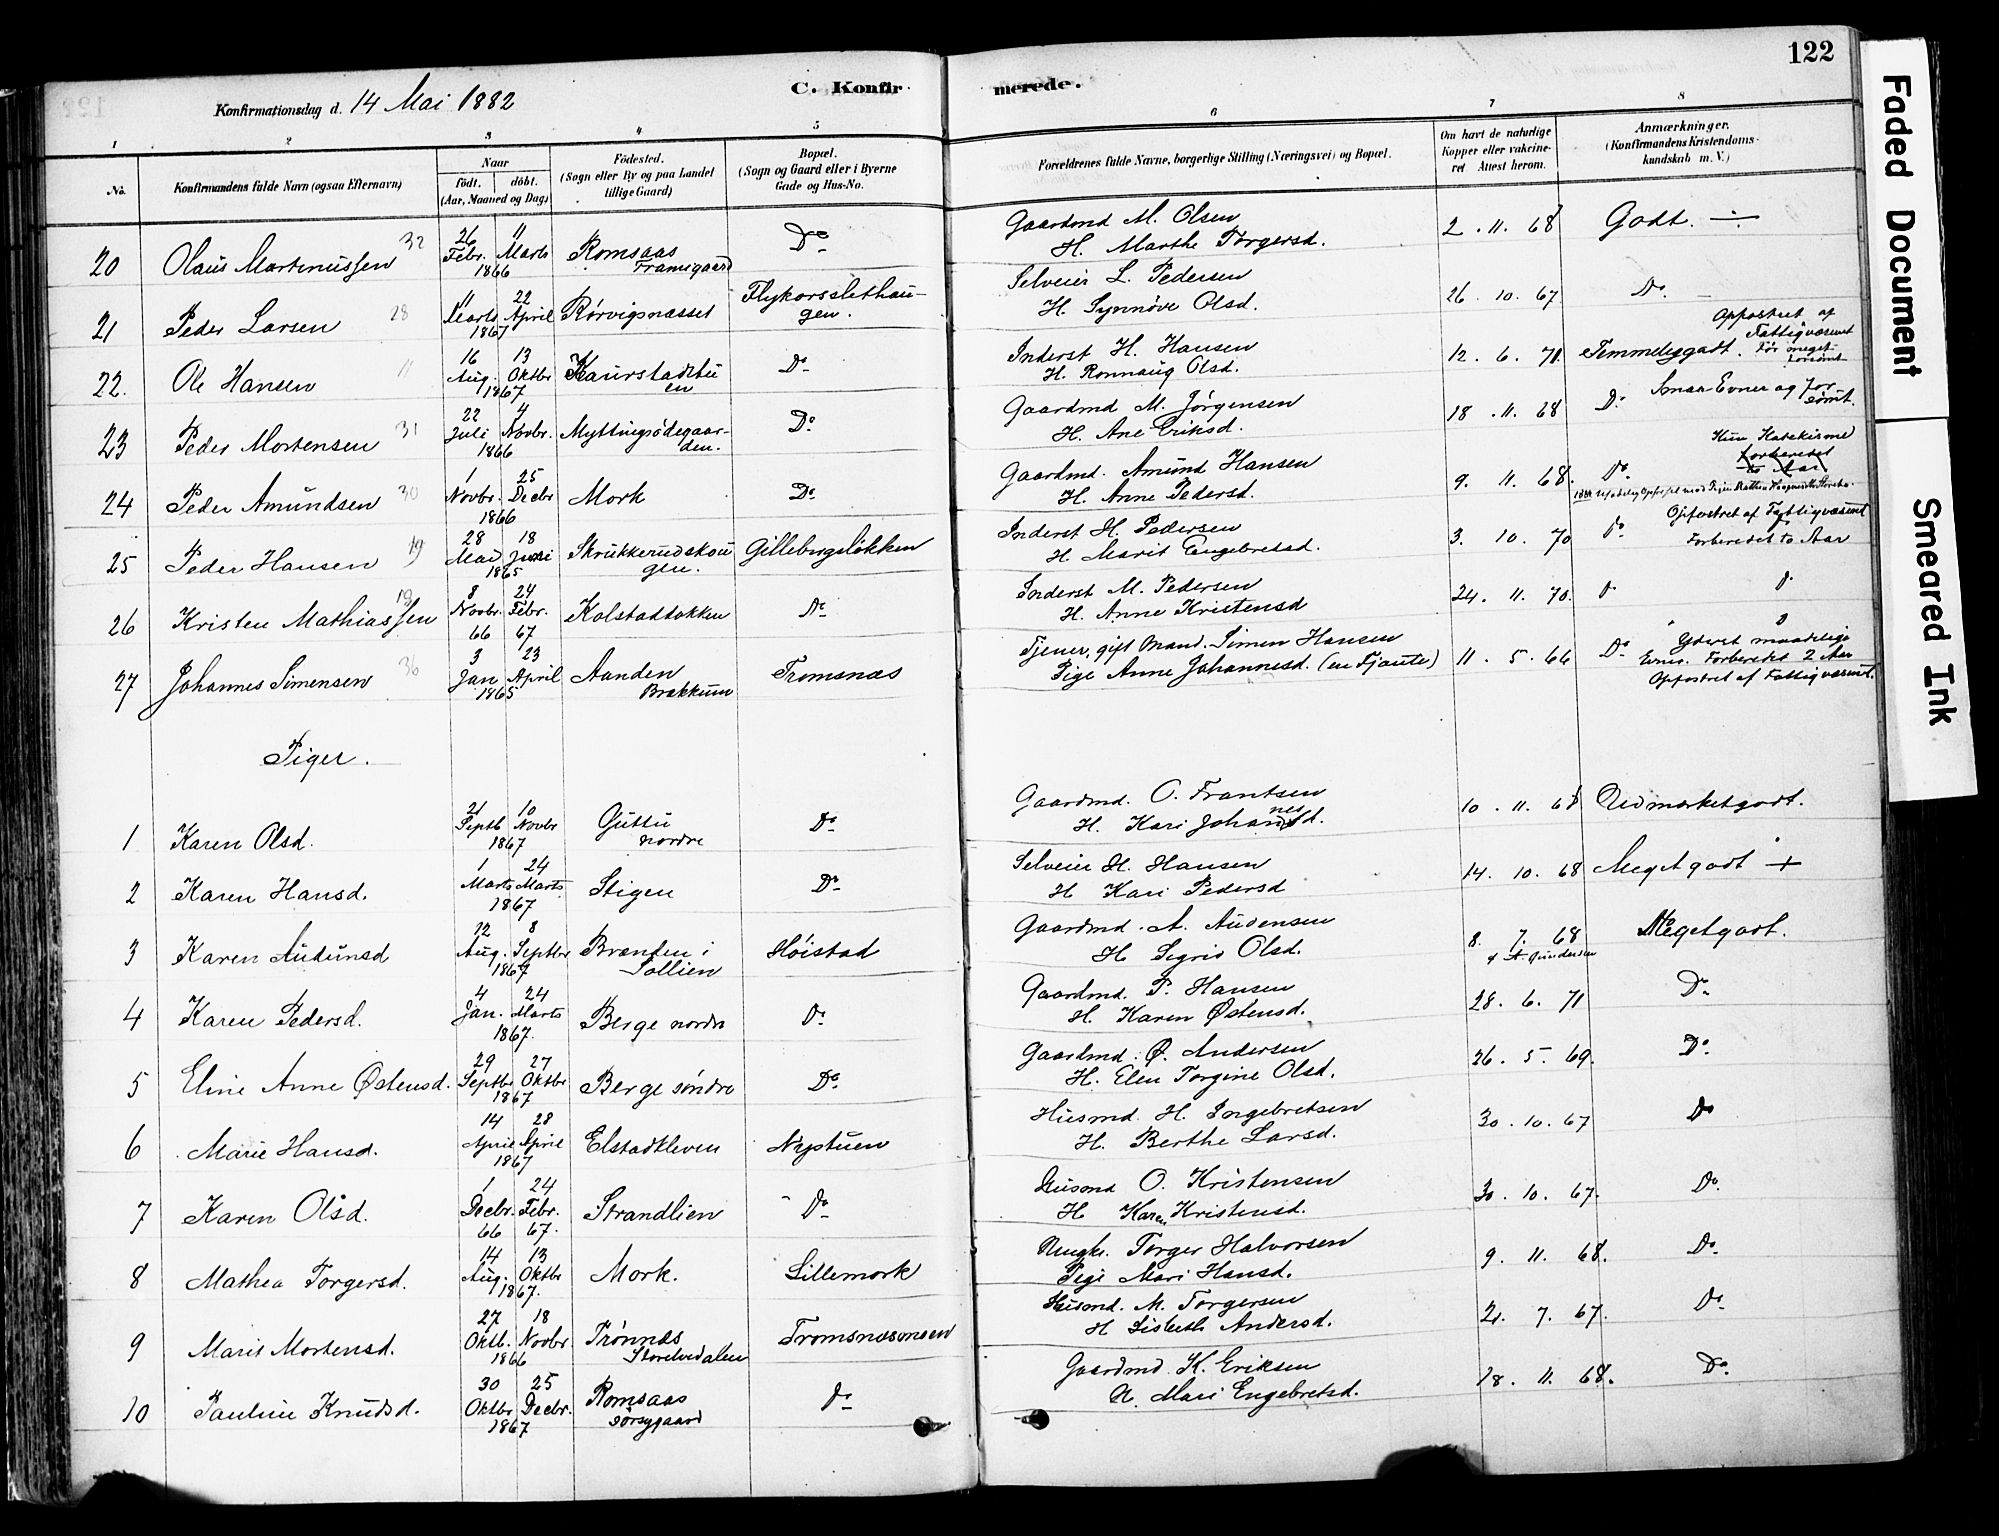 122
C. Konfirmerede.
Konfirmationsdag d. 14 Mai 1882
1 2 3 4 5 6 7 8
No.
Konfirmandens fulde Navn (ogsaa Efternavn)
Naar
födt. döbt.
(Aar, Maaned og Dag)
Födested.
(Sogn eller By og paa Landet
tillige Gaard)
Bopæl.
(Sogn og Gaard eller i Byerne
Gade og Hus-No.
Forældrenes fulde Navne, borgerlige Stilling (Næringsvei) og Bopæl.
Om havt de naturlige
Kopper eller vakcine-
ret Attest herom.
Anmærkninger.
(Konfirmandens Kristendoms-
kundskab m. V.)
20 Olaus Martinussen 32 26 Febr. 11 Marts 1866 Romsaas Framigaard Do
Gaardmd M. Olsen
H. Marthe Torgersd. 2. 11. 68 Godt. ÷
21 Peder Larsen 28 11 Marts 22 April 1867 Rørvignesset Flykorsslethau-
gen.
Selveier L. Pedersen
H. Synnöve Olsd. 26. 10. 67 Do.
22. Ole Hansen 11 16 Aug. 13 Oktbr 1867 Kaurstadstu
en Do
Inderst H. Hansen
H. Ronnaug Olsd. 12. 6. 71. Temmeliggodt.
Opfostret af
Fattigvæsenet
Før meget
forsömt
23 Peder Mortensen 31 22 Juli 4 Novbr. 1866 Myttingsödegaar-
den. Do
Gaardmd M. Jörgensen
H. Ane Eriksd. 18. 11. 68 Do Smaa Evner og for
sömt.
24 Peder Amundsen 30 1 Novbr. 25 Decbr 1866 Mork Do
Gaardmd. Amund Hansen
H. Anne Pedersd. 9. 11. 68. Do
Kun Katekisme
Forberedet
to Aar
25 Peder Hansen 19 28 Mai 18 Juni 1865 Skrukkerudskou
gen. Gillebergsløkken
Inderst H. Pedersen
H. Marit Engebretsd. 3. 10. 70 Do
Opfostret af Fattigvæsenet
Forberedet to Aar
26 Kristen Mathiassen 13 8 Novbr. 66 24 Febr. 67 Kolstadløkken Do
Inderst M. Pedersen
H. Anne Kristensd 24. 11. 70. Do Do
27 Johannes Simensen 36 3 Jan 23 April 1865 Aanden
Brækkum Tromsnæs
Tjener, gift Mand. Simen Hansen
Pige Anne Johannesd. (en Tjante) 11. 5. 66 Do
Yderst maadelige
Evner. Forberedet 2 Aar
Opfostret af Fattigvæsenet.
Piger.
1 Karen Olsd. 21 Septb 10 Novbr 1867 Guttu
nordre Do
Gaardmd. O. Frantsen
H. Kari Johannesd. 10. 11. 68 Udmærketgodt.
2 Karen Hansd. 1 Marts 24 Marts 1867 Stigen Do
Selveier H. Hansen
H Kari Pedersd 14. 10. 68 Megetgodt +
3 Karen Audunsd 12 Aug. 8 Septbr 1867 Brænden i
Sollien Høistad
Gaardmd. A. Audensen
H Sigrid Olsd. 8. 7. 68
A. Gundersen Megetgodt.
4 Karen Pedersd. 4 Jan. 24 Marts 1867. Berge nordre Do
Gaardmd. P. Hansen
H. Karen Østensd. 28. 6. 71 Do
5 Eline Anne Østensd. 29 Septbr 27 Oktbr 1867 Berge söndre Do
Gaardmd. Ø. Andersen
H. Elen Torgine Olsd. 26. 5. 69. Do
6 Marie Hansd. 14 April 28 April 1867 Elstadkleven Nyptuen
Husmd. H. Ingebretsen
H. Berthe Larsd. 30. 10. 67 Do
7 Karen Olsd. 1 Decbr. 66 24 Febr. 67. Strandlien Do
Husmd O. Kristensen
H Karen Kristensd. 30. 10. 67. Do
8 Mathea Torgersd. 14 Aug. 13 Oktbr 1867. Mork. Lillemork
Ungkr. Torger Halvorsen
Pige Mari Hansd. 9. 11. 68. Do
9 Marit Mortensd. 27 Oktb. 18 Novbr 1866 Trönnæs
Storelvedalen Tromsnæsmoen
Husmd. M. Torgersen
H Lisbeth Andersd. 21. 7. 67. Do
10 Pauline Knudsd. 30 Oktbr 25 Decbr. 1867 Romsaas
Sörsygaard Do
Gaardmd. K. Eriksen
H. Mari Engebretsd. 18. 11. 68. Do
Faded Document
Smeared Ink